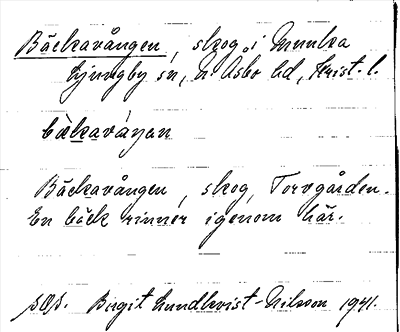 Bäckavången, skog i Munka
Ljungby sn, N. Åsbo hd, Krist. l.
bäkavåŋan
Bäckavången, skog, Torvgården.
En bäck rinner igenom här.
Birgit Lundkvist-Nilsson 1941.